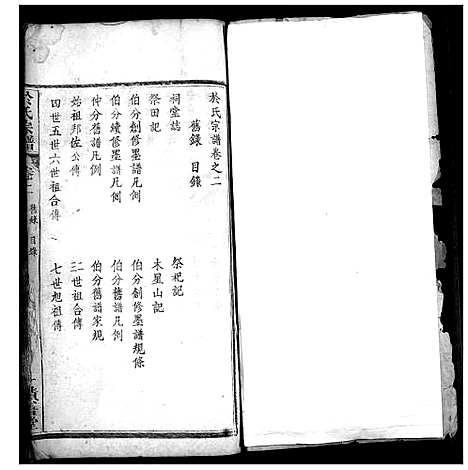 於氏宗譜卷之二
舊錄 目錄
祠堂誌 祭祀記
祭田記 木星山記
伯分創修墨譜凡例 伯分創修墨譜規條
伯分續修墨譜凡例 伯分舊譜凡例
仲分舊譜凡例 伯分舊譜家規
始祖邦佐公傳 二世祖合傳
四世五世六世祖合傳 七世旭祖傳
於氏宗譜
卷之二 舊錄 目錄
一